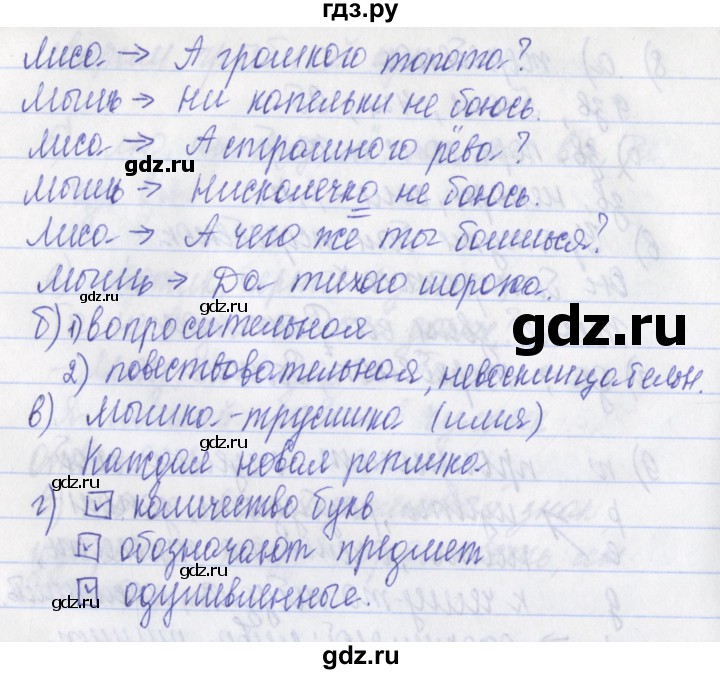 гдз.ру
Лиса → А громкого топота?
Мышь → Ни капельки не боюсь.
gdz.ru
Лиса → А страшного рёва?
gdz.ru
Мышь → Нисколечко не боюсь.
gdz.ru
Лиса → А чего же ты боишься?
Мышь → Да тихого шороха.
gdz.ru
gdz.ru
б) 1) вопросительная
gdz.ru
2) повествовательная, невосклицательн.
в) Мышка-трусишка (имя)
gdz.ru
Каждая новая реплика
г) ✓ количество букв
gdz.ru
✓ обозначают предмет
gdz.ru
✓ одушевленные.
gdz.ru
gdz.ru